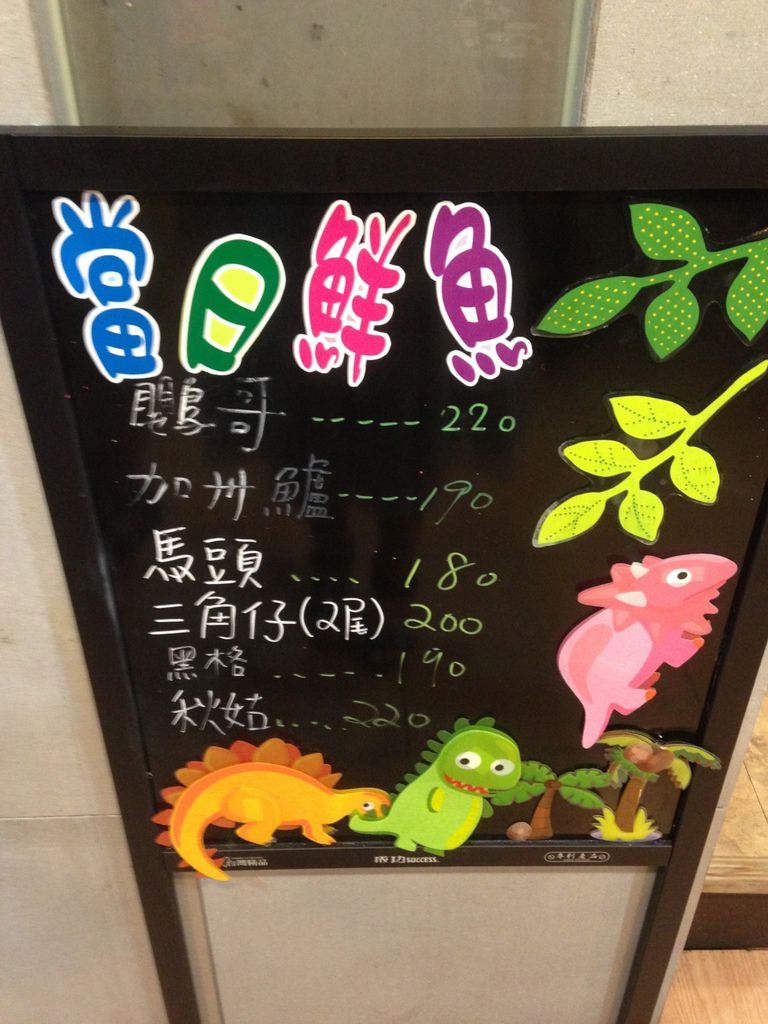 當日鮮魚
鸚哥-----220
加州鱸----190
馬頭....180
三角仔(2尾)200
黑格......190
秋姑.....220
台灣精品 成功SUCCESS. 專利產品